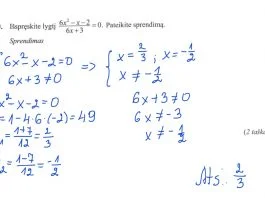 . Išspręskite lygtį (6x² − x − 2)/(6x + 3) = 0. Pateikite sprendimą.
Sprendimas
6x² − x − 2 = 0
6x + 3 ≠ 0
⇒ { x = 2/3 ; x = −1/2
x ≠ −1/2
x² − x − 2 = 0
= 1 − 4·6·(−2) = 49
= (1+7)/12 = 2/3
= (1−7)/12 = −1/2
6x + 3 ≠ 0
6x ≠ −3
x ≠ −1/2
(2 tašk
Ats.: 2/3